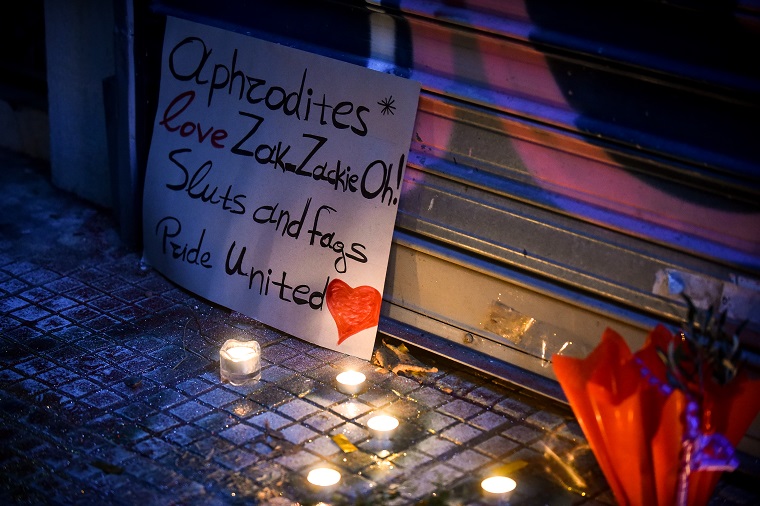 Aphrodites*
love Zak-Zackie Oh!
Sluts and fags
Pride United